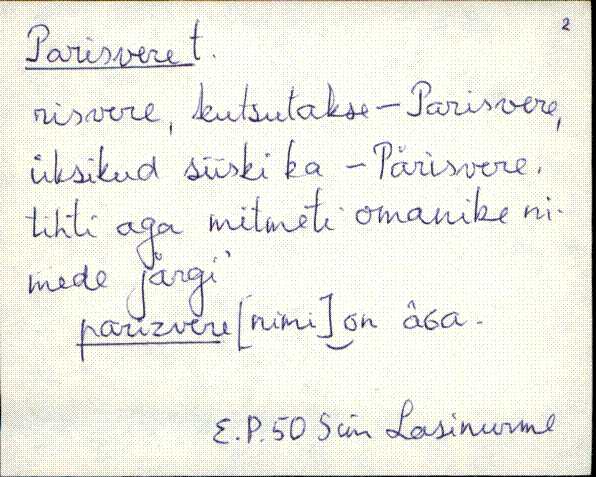 2
Parisvere t.
risvere, kutsutakse – Parisvere,
üksikud siiski ka – Pärisvere.
tihti aga mitmeti omanike ni-
mede järgi"
parizvere [nimi] on
E.P. 50 Sim Lasinurme